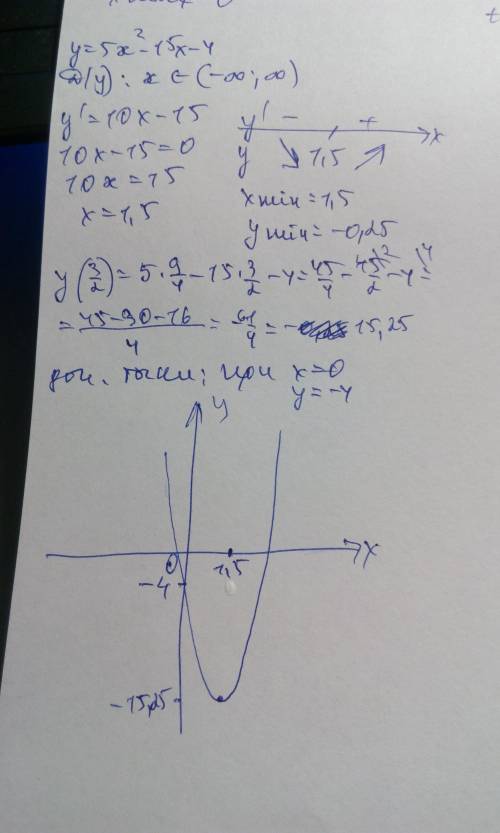 y=5x²-15x-4
D(y): x∈(-∞;∞)
y'=10x-15
10x-15=0
10x=15
x=1,5
y' - + x
y 1,5
xmin=1,5
ymin=-0,25
y(3/2)=5·9/4-15·3/2-4=45/4-45/2-4=
=(45-90-16)/4=-61/4=-15,25
доп. точки; при x=0
y=-4
y
x
0
1,5
-4
-15,25